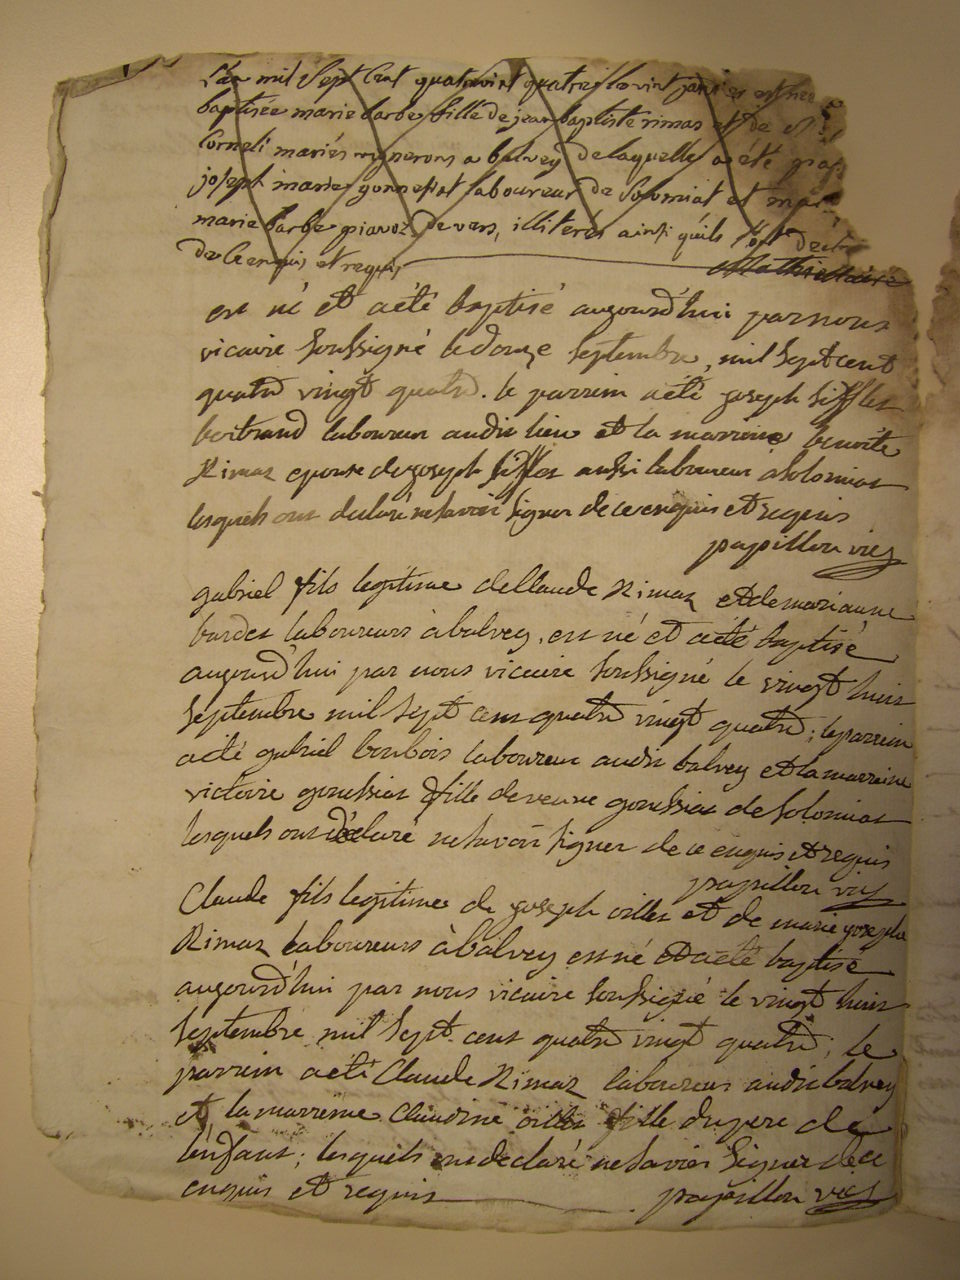 L'an mil Sept Cent quatrevint quatre le vint janvier est née
baptisée marie barbe fille de jean baptiste rimas et de
Corneli mariés vignerons a balvey de laquelle a été
joseph marie gonnefiat laboureur de Solomiat et
marie barbe piavoz de vers, illiterés ainsi quils l'ont
de ce enquis et requis
est né et a été baptisé aujourd'hui par nous
vicaire soussigné le douze septembre, mil sept cent
quatre vingt quatre. le parrein a été joseph Sifflet
bertrand laboureur audit lieu et la marreine benoite
Rimaz epouse de joseph Sifflet aussi laboureur a Solomiat
lesquels ont declaré ne savoir signer de ce enquis et requis
papillon vic
gabriel fils legitime de Claude Rimaz et de marianne
bardet laboureurs à balvey, est né et a été baptisé
aujourd'hui par nous vicaire soussigné le vingt huit
septembre mil sept cent quatre vingt quatre; le parrein
a été gabriel bonbois laboureur audit balvey et la marreine
victoire goussiat fille de veuve goussiat de Solomiat
lesquels ont déclaré ne savoir signer de ce enquis et requis
papillon vic
Claude fils legitime de joseph oillet et de marie josephe
Rimaz laboureurs à balvey est né et a été baptisé
aujourd'hui par nous vicaire soussigné le vingt huit
septembre mil sept cent quatre vingt quatre; le
parrein a été Claude Rimaz laboureur audit balvey
et la marreine Claudine oillet fille du pere de
l'enfant; lesquels ont declaré ne savoir signer de ce
enquis et requis papillon vic